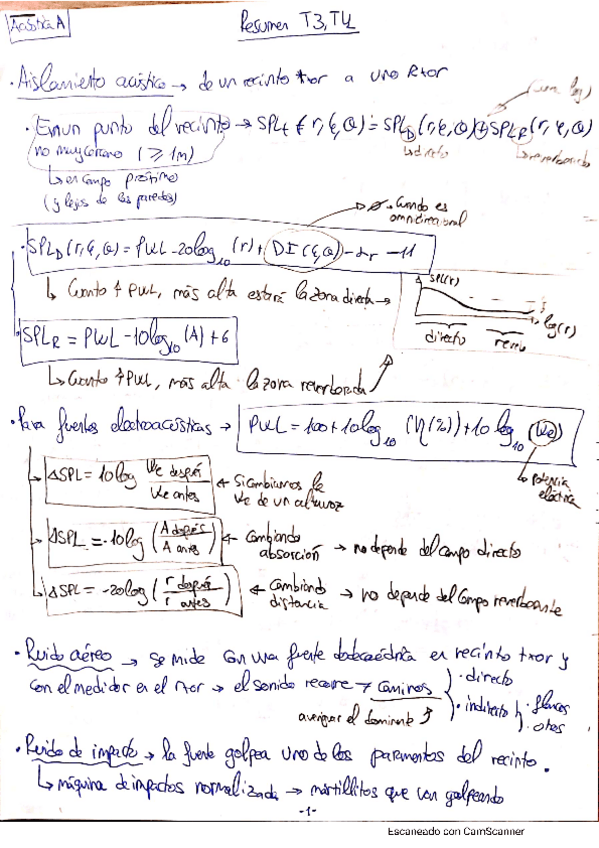 Acústica A
Resumen T3, T4
· Aislamiento acústico → de un recinto txor a uno Rxor
(suma log)
· En un punto del recinto → SPLt (r, φ, θ) = SPL_D (r, φ, θ) ⊕ SPL_R (r, φ, θ)
no muy cercano (≥ 1m)
↳ directo
↳ reverberado
↳ en campo próximo
(y lejos de las paredes)
→ ∅. Cuando es omnidireccional
· SPL_D (r, φ, θ) = PWL - 20log10 (r) + DI (φ, θ) - αr - 11
↳ Cuanto ↑ PWL, más alta estará la zona directa →
SPL(r)
log(r)
directo
SPL_R = PWL - 10log10 (A) + 6
↳ Cuanto ↑ PWL, más alta la zona reverberada
· Para fuentes electroacústicas → PWL = 100 + 10log10 (η(%)) + 10 log10 (We)
↳ potencia eléctrica
→ ΔSPL = 10log We después / We antes ← Si cambiamos la We de un altavoz
→ ΔSPL = -10log (A después / A antes) ← Cambiando absorción → no depende del campo directo
→ ΔSPL = -20log (r después / r antes) ← Cambiando distancia → no depende del campo reverberante
· Ruido aéreo → se mide con una fuente dodecaédrica en recinto txor y
con el medidor en el rxor → el sonido recorre ≠ caminos
· directo
· indirecto
· flancos
· otros
averiguar el dominante
· Ruido de impacto → la fuente golpea uno de los paramentos del recinto.
↳ máquina de impactos normalizada → martillitos que van golpeando
-1-
Escaneado con CamScanner